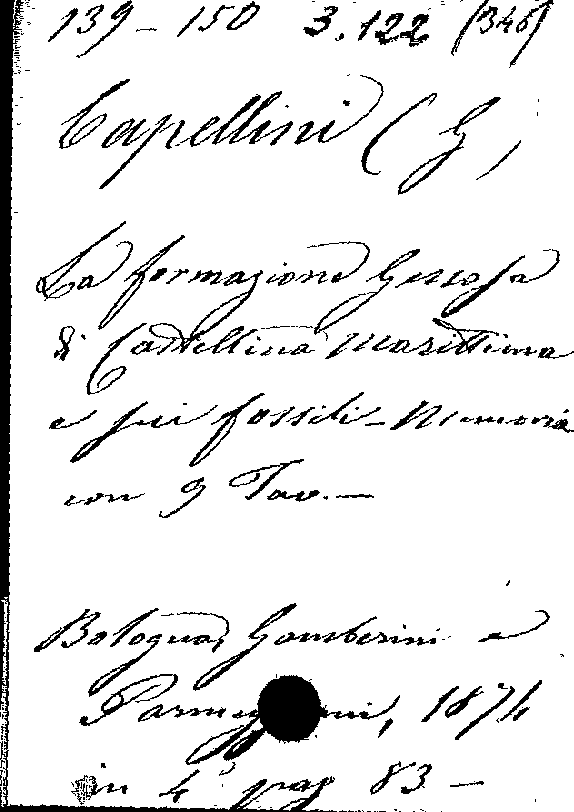 139 - 150 3.122 (346)
Capellini (G)
La formazione Gessosa
di Castellina Marittima
e sui fossili - Memoria
con 9 Tav. -
Bologna, Gamberini e
1874
in 4° pag 83 -